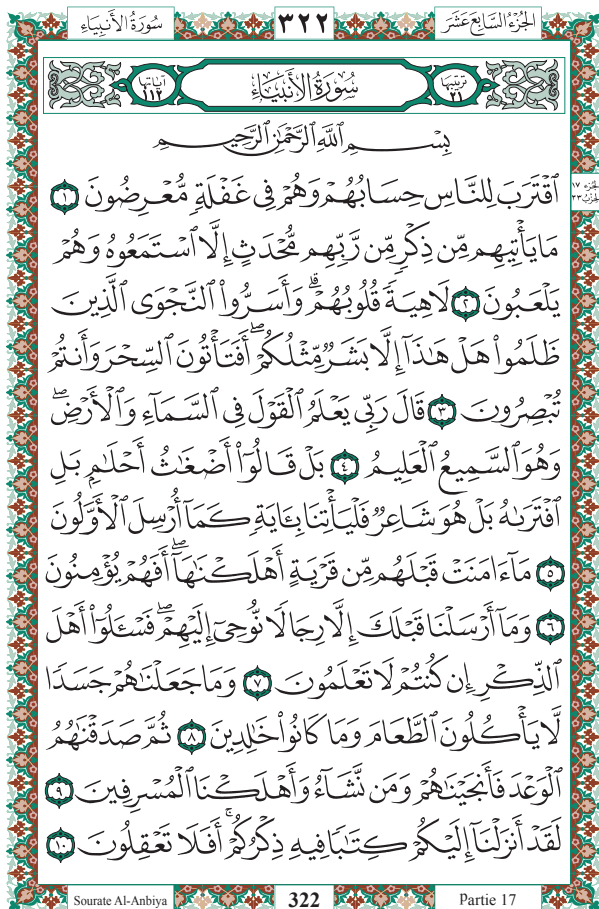 الجُزْءُ السَّابِعَ عَشَرَ ٣٢٢ سُورَةُ الأَنبِيَاءِ
تَرتيبُهَا ٢١ سُورَةُ الأَنْبِيَاءِ آيَاتُهَا ١١٢
بِسْمِ ٱللَّهِ ٱلرَّحْمَٰنِ ٱلرَّحِيمِ
ٱقْتَرَبَ لِلنَّاسِ حِسَابُهُمْ وَهُمْ فِى غَفْلَةٍ مُّعْرِضُونَ ١
مَا يَأْتِيهِم مِّن ذِكْرٍ مِّن رَّبِّهِم مُّحْدَثٍ إِلَّا ٱسْتَمَعُوهُ وَهُمْ
يَلْعَبُونَ ٢ لَاهِيَةً قُلُوبُهُمْ ۗ وَأَسَرُّوا۟ ٱلنَّجْوَى ٱلَّذِينَ
ظَلَمُوا۟ هَلْ هَٰذَآ إِلَّا بَشَرٌ مِّثْلُكُمْ ۖ أَفَتَأْتُونَ ٱلسِّحْرَ وَأَنتُمْ
تُبْصِرُونَ ٣ قَالَ رَبِّى يَعْلَمُ ٱلْقَوْلَ فِى ٱلسَّمَآءِ وَٱلْأَرْضِ ۖ
وَهُوَ ٱلسَّمِيعُ ٱلْعَلِيمُ ٤ بَلْ قَالُوٓا۟ أَضْغَٰثُ أَحْلَٰمٍۭ بَلِ
ٱفْتَرَىٰهُ بَلْ هُوَ شَاعِرٌ فَلْيَأْتِنَا بِـَٔايَةٍ كَمَآ أُرْسِلَ ٱلْأَوَّلُونَ
٥ مَآ ءَامَنَتْ قَبْلَهُم مِّن قَرْيَةٍ أَهْلَكْنَٰهَآ ۖ أَفَهُمْ يُؤْمِنُونَ
٦ وَمَآ أَرْسَلْنَا قَبْلَكَ إِلَّا رِجَالًا نُّوحِىٓ إِلَيْهِمْ ۖ فَسْـَٔلُوٓا۟ أَهْلَ
ٱلذِّكْرِ إِن كُنتُمْ لَا تَعْلَمُونَ ٧ وَمَا جَعَلْنَٰهُمْ جَسَدًا
لَّا يَأْكُلُونَ ٱلطَّعَامَ وَمَا كَانُوا۟ خَٰلِدِينَ ٨ ثُمَّ صَدَقْنَٰهُمُ
ٱلْوَعْدَ فَأَنجَيْنَٰهُمْ وَمَن نَّشَآءُ وَأَهْلَكْنَا ٱلْمُسْرِفِينَ ٩
لَقَدْ أَنزَلْنَآ إِلَيْكُمْ كِتَٰبًا فِيهِ ذِكْرُكُمْ ۖ أَفَلَا تَعْقِلُونَ ١٠
Sourate Al-Anbiya 322 Partie 17